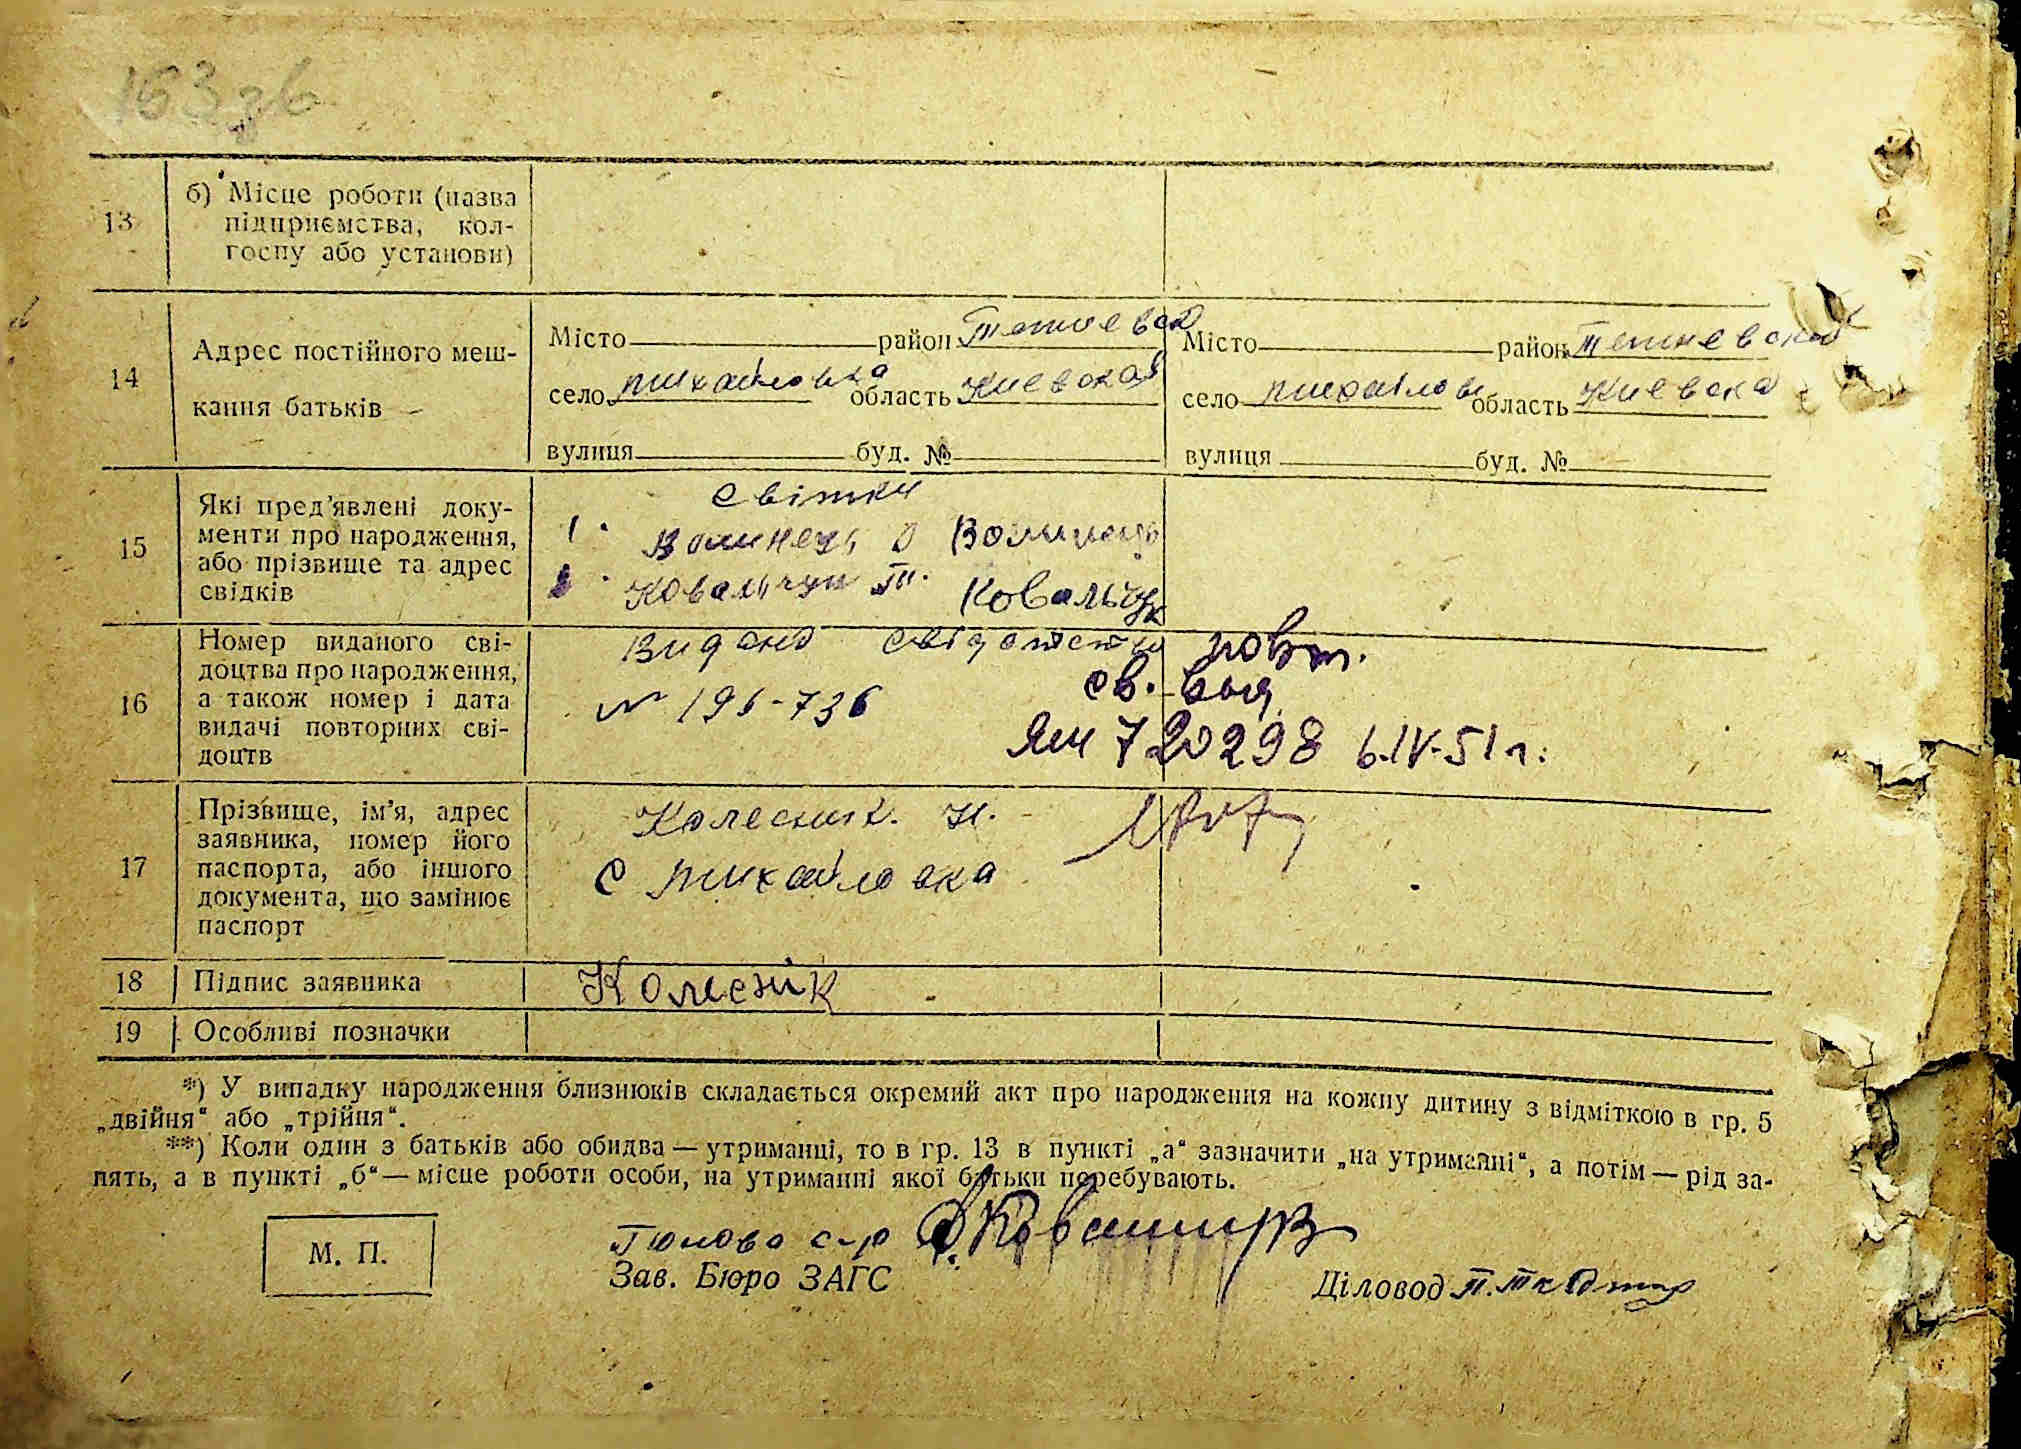 153зв
13 б) Місце роботи (назва
підприємства, кол-
госпу або установи)
14 Адрес постійного меш-
кання батьків
Місто район Тетиевск Місто район Тетиевской
село михайловка область Киевская село михайлов область Киевска
вулиця буд. № вулиця буд. №
15 Які пред'явлені доку-
менти про народження,
або прізвище та адрес
свідків
Світки
1. Волинець О Волинець
2. Ковальчук Т. Ковальчук
16 Номер виданого сві-
доцтва про народження,
а також номер і дата
видачі повторних сві-
доцтв
Видано свідотство
№ 196-736
повт.
св. выд.
ЯМ 720298 6.IV-51 г.
17 Прізвище, ім'я, адрес
заявника, номер його
паспорта, або іншого
документа, що замінює
паспорт
Колесник. Н.
С михайловка
18 Підпис заявника Колєснік
19 Особливі позначки
*) У випадку народження близнюків складається окремий акт про народження на кожну дитину з відміткою в гр. 5
„двійня“ або „трійня“.
**) Коли один з батьків або обидва — утриманці, то в гр. 13 в пункті „а“ зазначити „на утриманні“, а потім — рід за-
нять, а в пункті „б“ — місце роботи особи, на утриманні якої батьки перебувають.
М. П.
Голова с-р
Зав. Бюро ЗАГС
Діловод П.